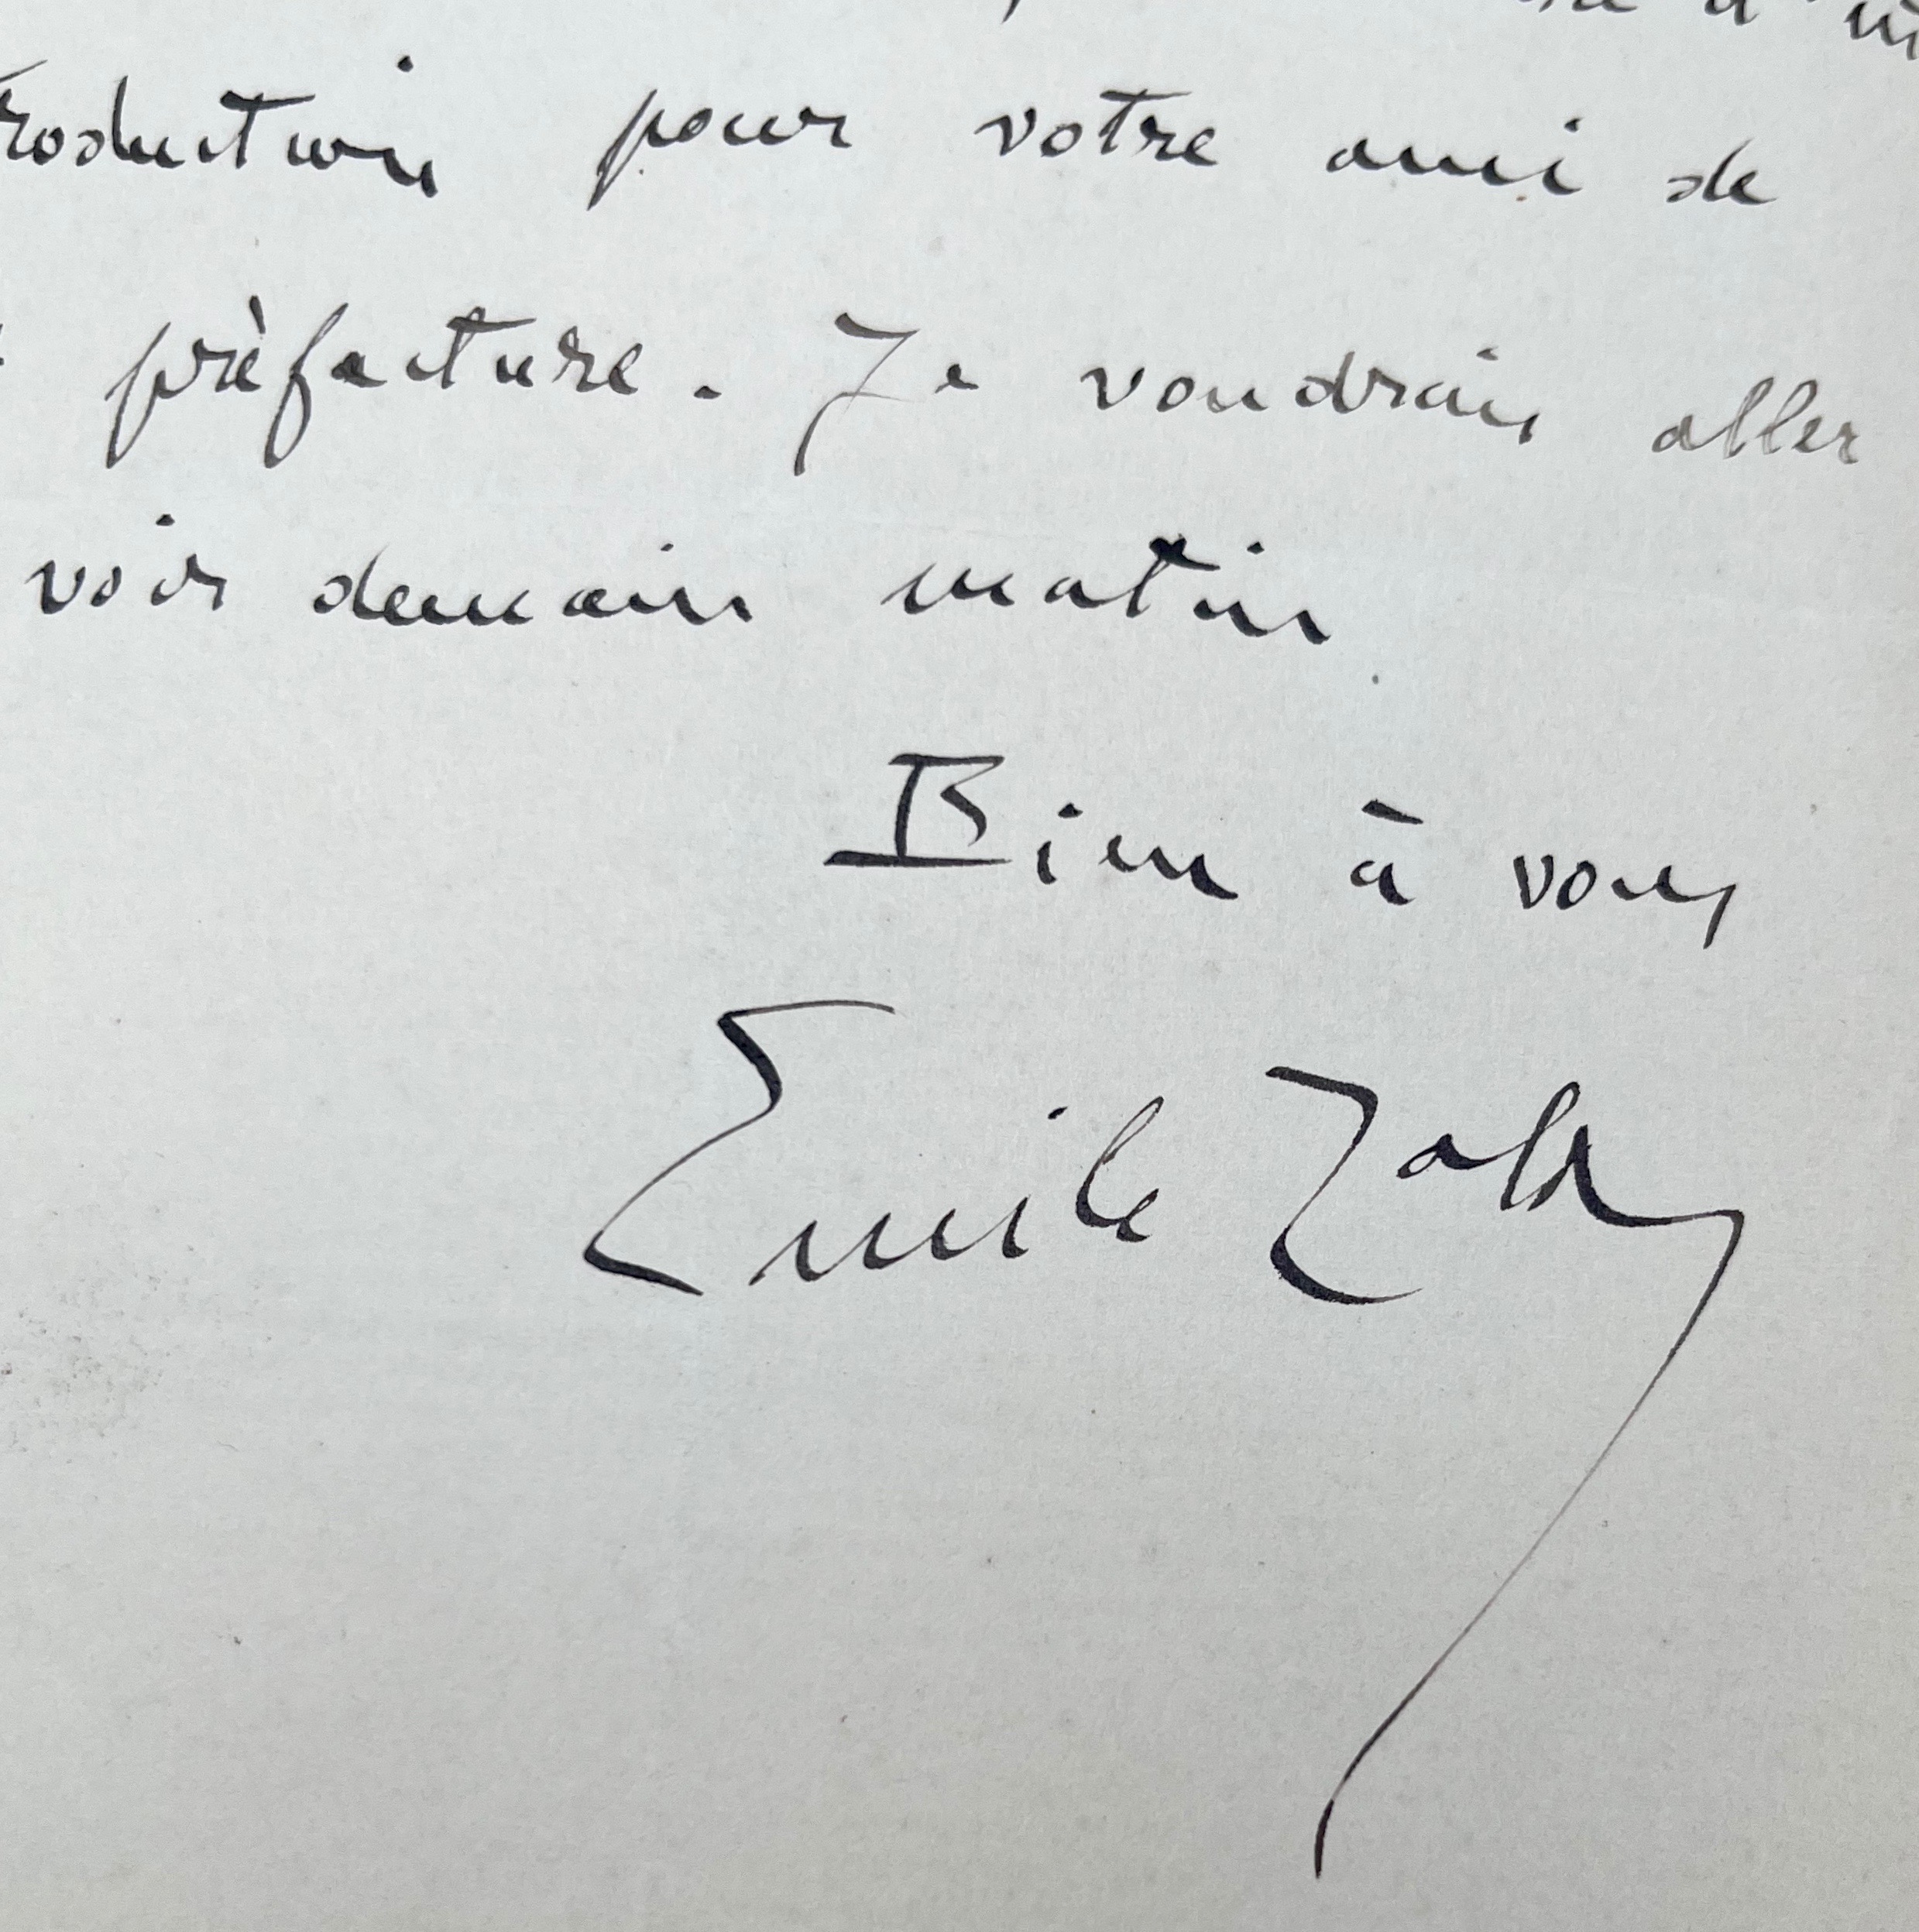 troduction pour votre ami de
préfecture. Je voudrais aller
voir demain matin.
Bien à vous
Emile Zola